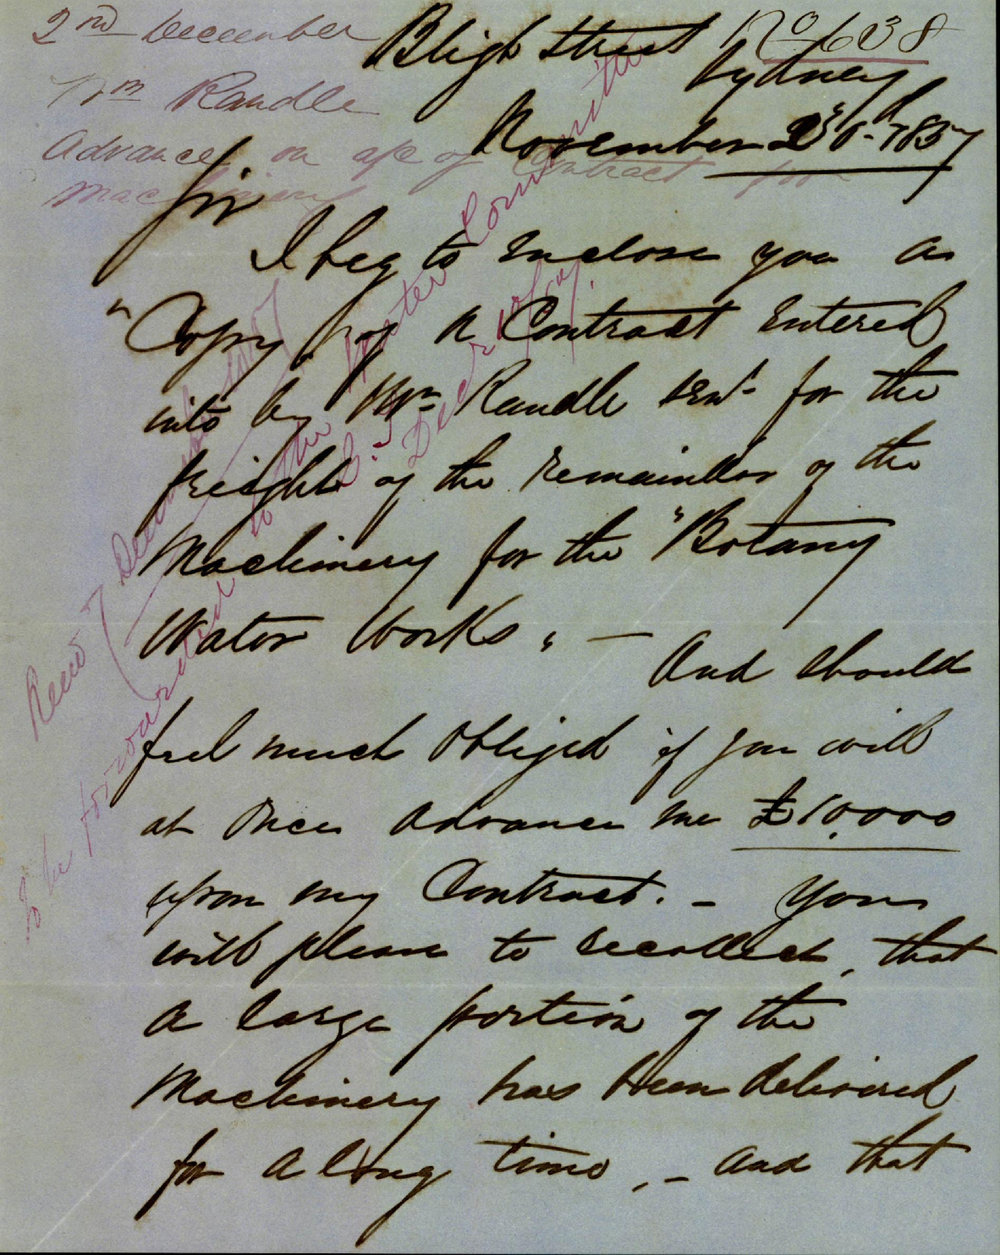 2nd December
Wm Randle
Advance on a/c of Contract for
Machinery
No 638
Bligh Street
Sydney
November 1857
Sir
I beg to enclose you a
"Copy" of a Contract Entered
into by Wm Randle Senr for the
freight of the remainder of the
Machinery for the "Botany
Water Works" — And should
feel much obliged if you will
at once advance me £10,000
upon my Contract. — You
will please to recollect, that
a large portion of the
Machinery has been delivered
for a long time, — and that
Recd December
To be forwarded to the Water Committee